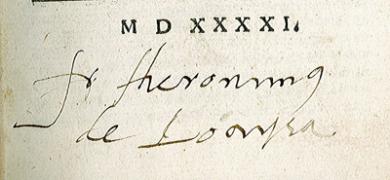 M D XXXXI.
fr hieronimus
de Loaysa